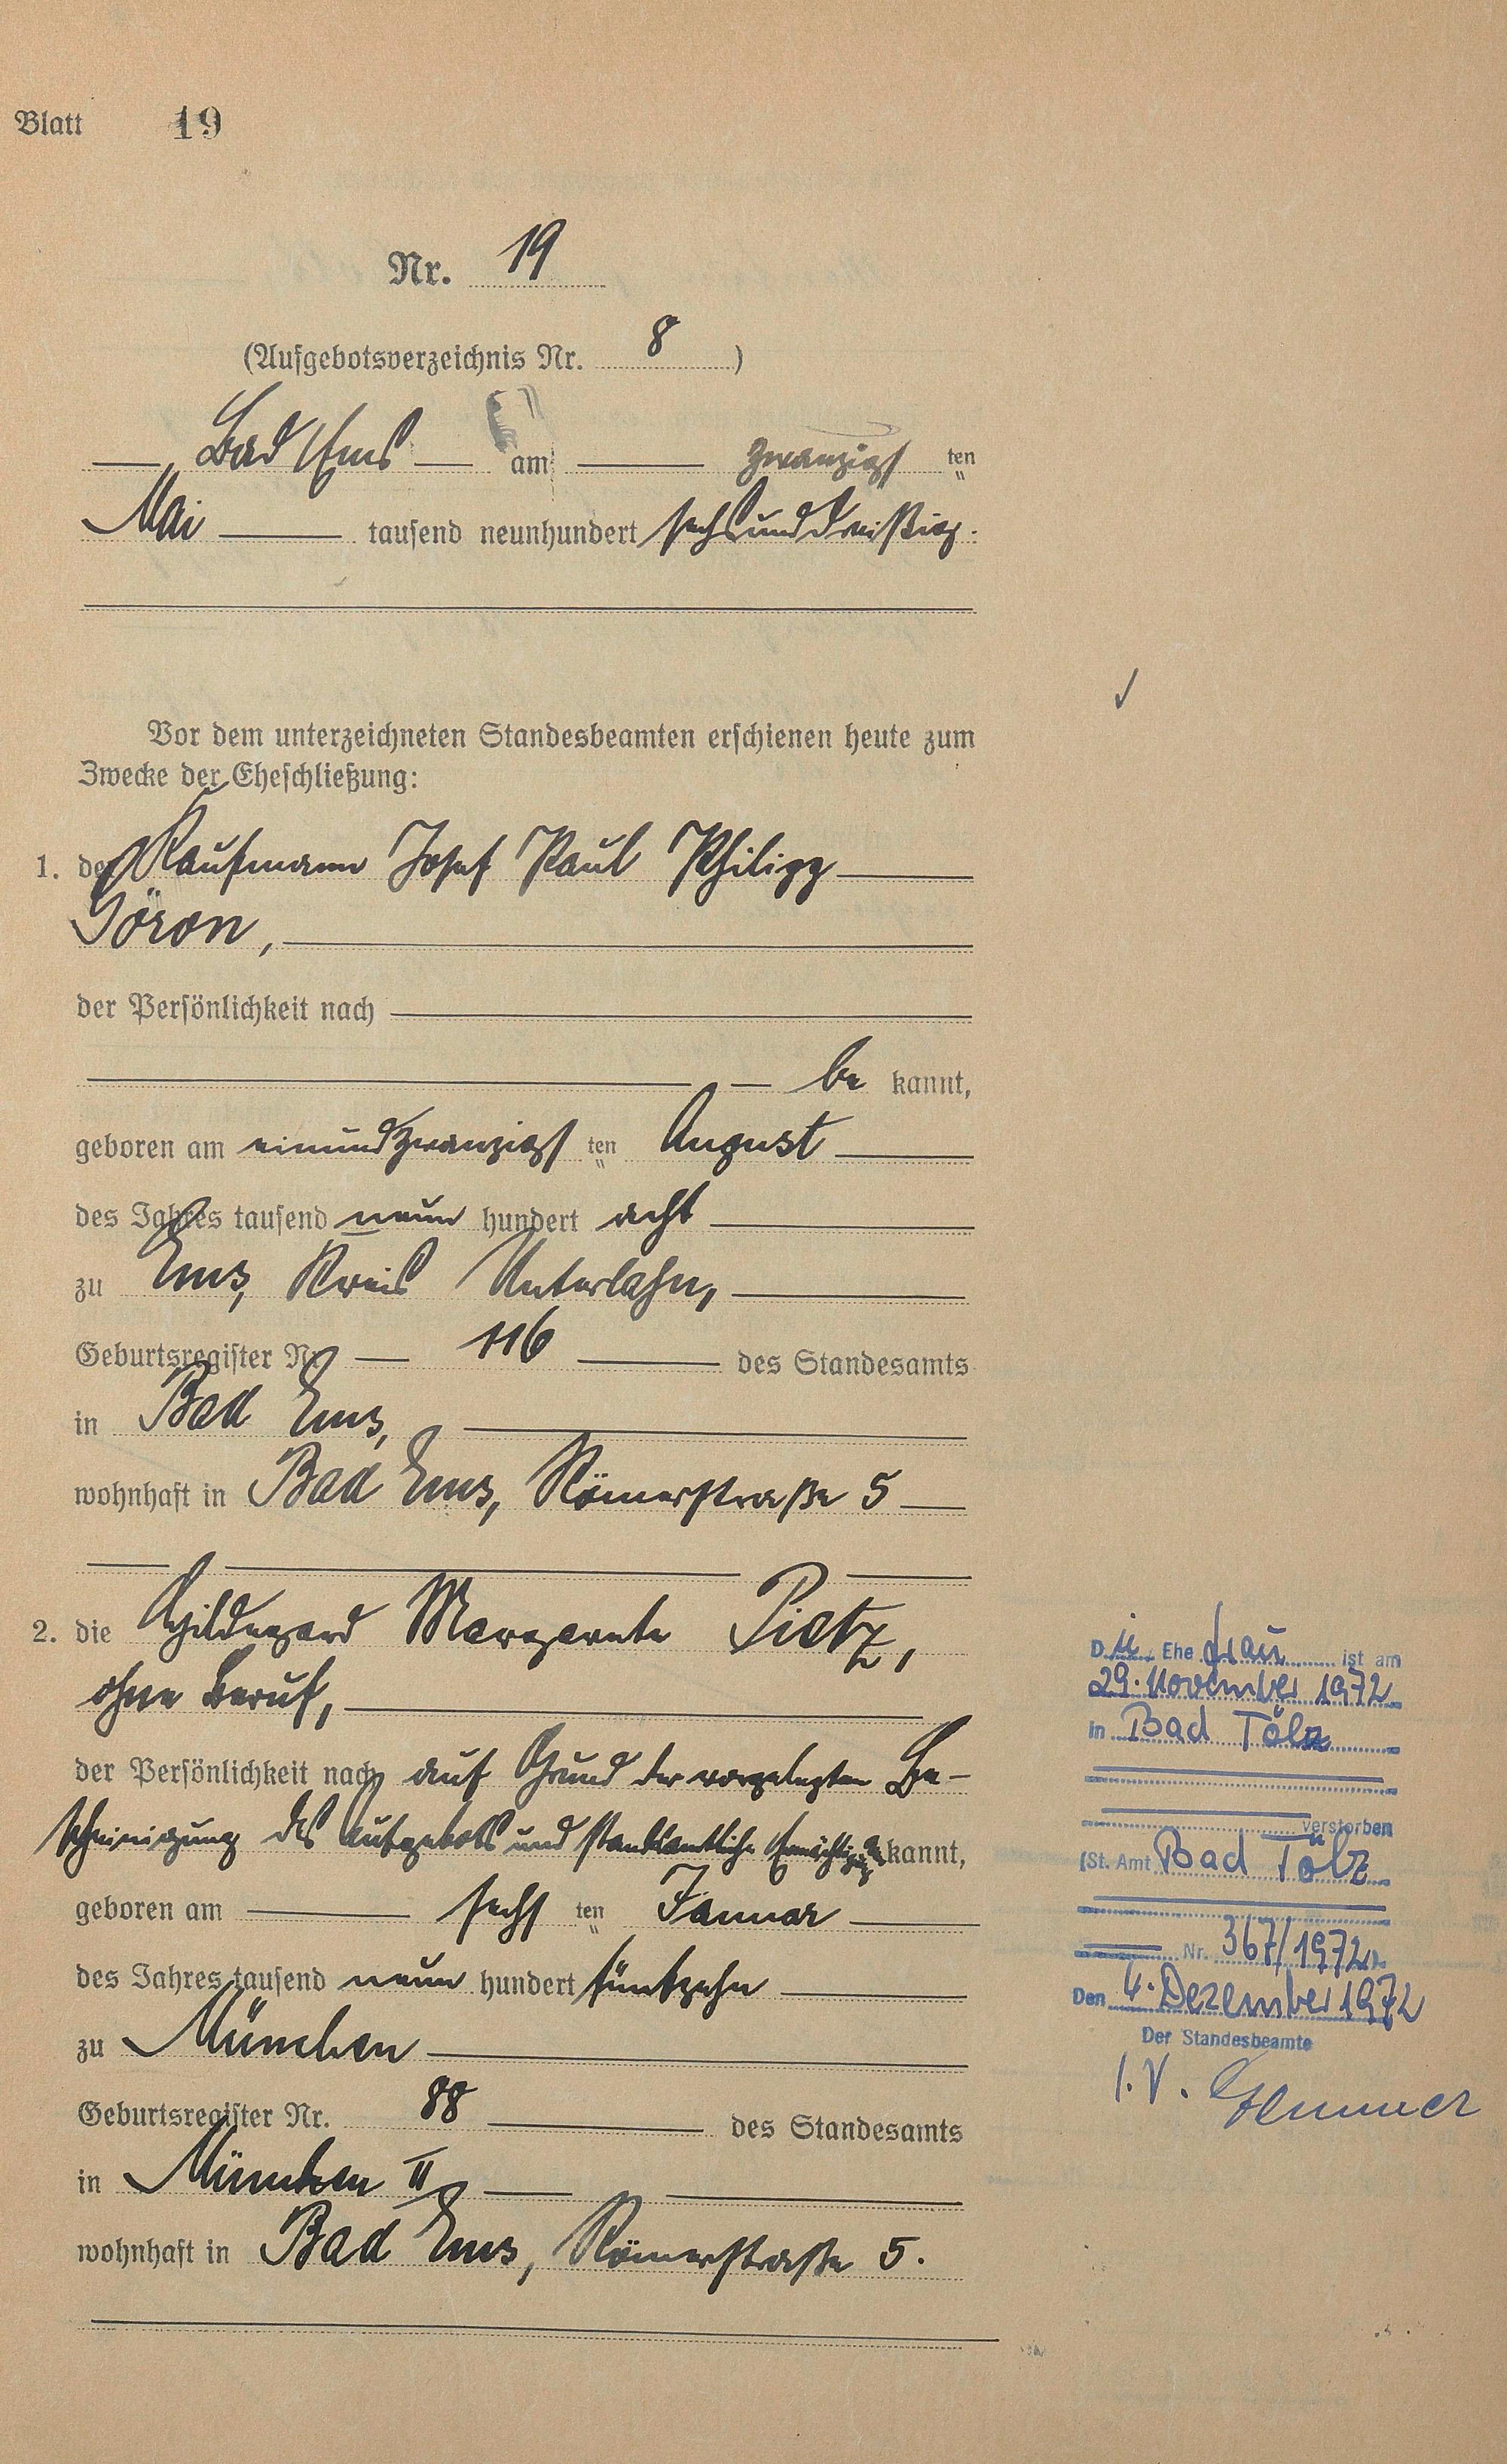 Blatt 19
Nr. 19
(Aufgebotsverzeichnis Nr. 8)
Bad Ems am zwanzigsten
Mai tausend neunhundert sechsunddreißig.
Vor dem unterzeichneten Standesbeamten erschienen heute zum
Zwecke der Eheschließung:
1. der Kaufmann Josef Paul Philipp
Göron,
der Persönlichkeit nach
be kannt,
geboren am einundzwanzigsten August
des Jahres tausend neun hundert acht
zu Ems, Kreis Unterlahn,
Geburtsregister Nr. 116 des Standesamts
in Bad Ems,
wohnhaft in Bad Ems, Römerstraße 5
2. die Hildegard Margarete Pietz,
ohne Beruf,
der Persönlichkeit nach auf Grund der vorgelegten Be-
scheinigung des Aufgebots und standesamtliche Ermächtigung kannt,
geboren am sechsten Januar
des Jahres tausend neun hundert fünfzehn
zu München
Geburtsregister Nr. 88 des Standesamts
in München II
wohnhaft in Bad Ems, Römerstraße 5.
Die Ehefrau ist am
29. November 1972
in Bad Tölz
verstorben
(St. Amt Bad Tölz
Nr. 367/1972)
Den 4. Dezember 1972
Der Standesbeamte
I.V.